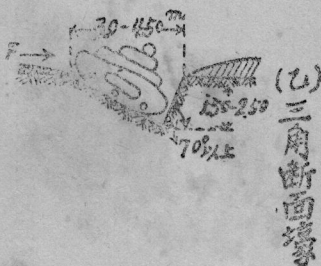 3.0-4.50m
F
1.50-2.50
70°以上
(乙)三角断面壕